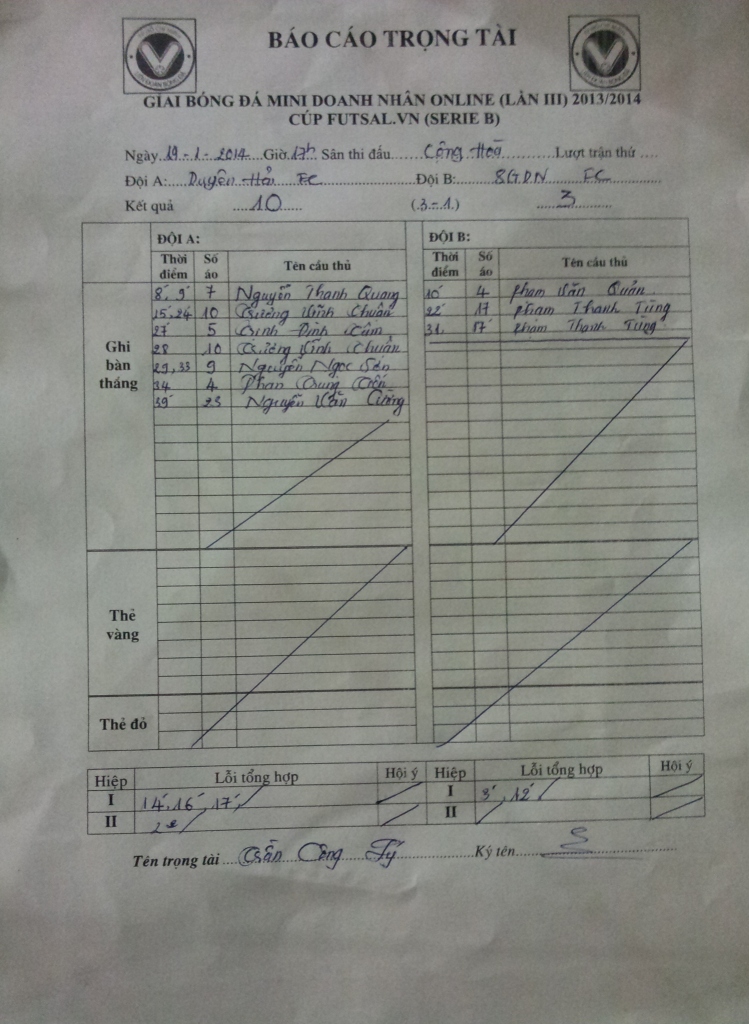 BÁO CÁO TRỌNG TÀI
GIẢI BÓNG ĐÁ MINI DOANH NHÂN ONLINE (LẦN III) 2013/2014
CÚP FUTSAL.VN (SERIE B)
Ngày 19-1-2014 Giờ 17h Sân thi đấu Cộng Hoà Lượt trận thứ
Đội A: Duyên Hải FC Đội B: SGDN FC
Kết quả 10 (3-1) 3
ĐỘI A: ĐỘI B:
Thời điểm Số áo Tên cầu thủ Thời điểm Số áo Tên cầu thủ
Ghi bàn thắng
8', 9' 7 Nguyễn Thanh Quang 10' 4 Phạm Văn Quân
15', 24' 10 Trương Vĩnh Chuẩn 22' 17 Phạm Thanh Tùng
27' 5 Đinh 31' 17 Phạm Thanh Tùng
28 10 Trương Vĩnh Chuẩn
29', 33' 9 Nguyễn Ngọc
34' 4 Phan Trung
39' 23 Nguyễn Văn Cường
Thẻ vàng
Thẻ đỏ
Hiệp Lỗi tổng hợp Hội ý Hiệp Lỗi tổng hợp Hội ý
I 14', 16', 17' I 3', 12'
II II
Tên trọng tài Trần Công Tý Ký tên